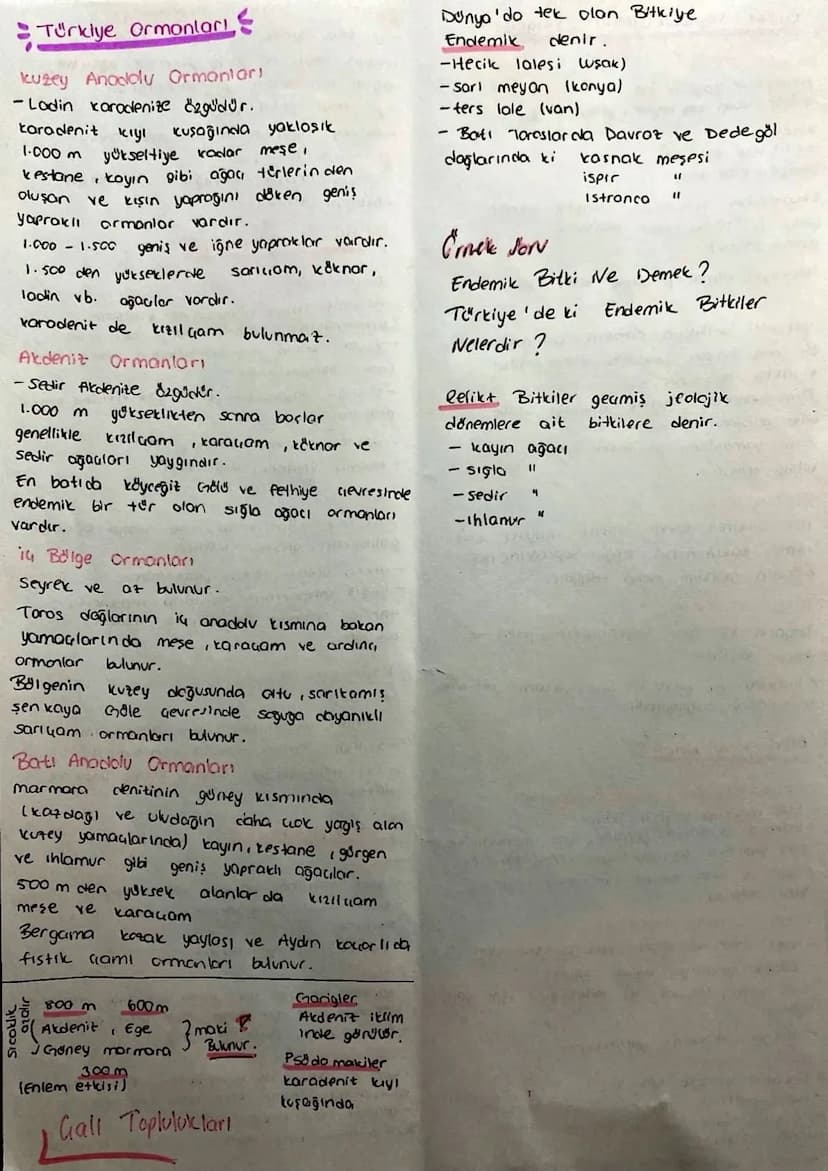 Türkiye Ormanları
Kuzey Anadolu Ormanları
- Ladin karadenize özgüdür.
Karadeniz kıyı kuşağında yaklaşık
1.000 m yükseltiye kadar meşe,
kestane, kayın gibi ağaç türlerinden
oluşan ve kışın yaprağını döken geniş
yapraklı ormanlar vardır.
1.000 - 1.500 geniş ve iğne yapraklar vardır.
1.500 den yükseklerde sarıçam, köknar,
ladin vb. ağaçlar vardır.
Karadeniz de kızılçam bulunmaz.
Akdeniz Ormanları
- Sedir Akdenize özgüdür.
1.000 m yükseklikten sonra başlar
genellikle kızılçam, karaçam, köknar ve
sedir ağaçları yaygındır.
En batıda köyceğiz Gölü ve fethiye çevresinde
endemik bir tür olan sığla ağacı ormanları
vardır.
iç Bölge Ormanları
Seyrek ve az bulunur.
Toros dağlarının iç anadolu kısmına bakan
yamaçlarında meşe, karaçam ve ardınç
ormanlar bulunur.
Bölgenin kuzey doğusunda oltu, sarıkamış
şenkaya Göle çevresinde soğuğa dayanıklı
sarıçam ormanları bulunur.
Batı Anadolu Ormanları
marmara denizinin güney kısmında
(kazdağı ve uludağın daha çok yağış alan
kuzey yamaçlarında) kayın, kestane, gürgen
ve ıhlamur gibi geniş yapraklı ağaçlar.
500 m den yüksek alanlar da kızılçam
meşe ve karaçam
Bergama kozak yaylası ve Aydın koçarlıda
fıstık çamı ormanları bulunur.
Sıcaklık azalır
800 m 600m
Akdeniz, Ege
Güney marmara
} maki Bulunur.
300 m
(enlem etkisi)
Garigler
Akdeniz iklim
inde görülür.
Psödo makiler
karadeniz kıyı
kuşağında
Çalı Toplulukları
Dünya'da tek olan Bitkiye
Endemik denir.
- Hecik lalesi (uşak)
- sarı meyan (konya)
- ters lale (van)
- Batı Toroslarda Davraz ve Dedegöl
dağlarında ki kasnak meşesi
ispir "
Istranca "
Örnek Soru
Endemik Bitki Ne Demek?
Türkiye'de ki Endemik Bitkiler
Nelerdir?
Relikt Bitkiler geçmiş jeolojik
dönemlere ait bitkilere denir.
- kayın ağacı
- sığla "
- sedir "
- ıhlamur "